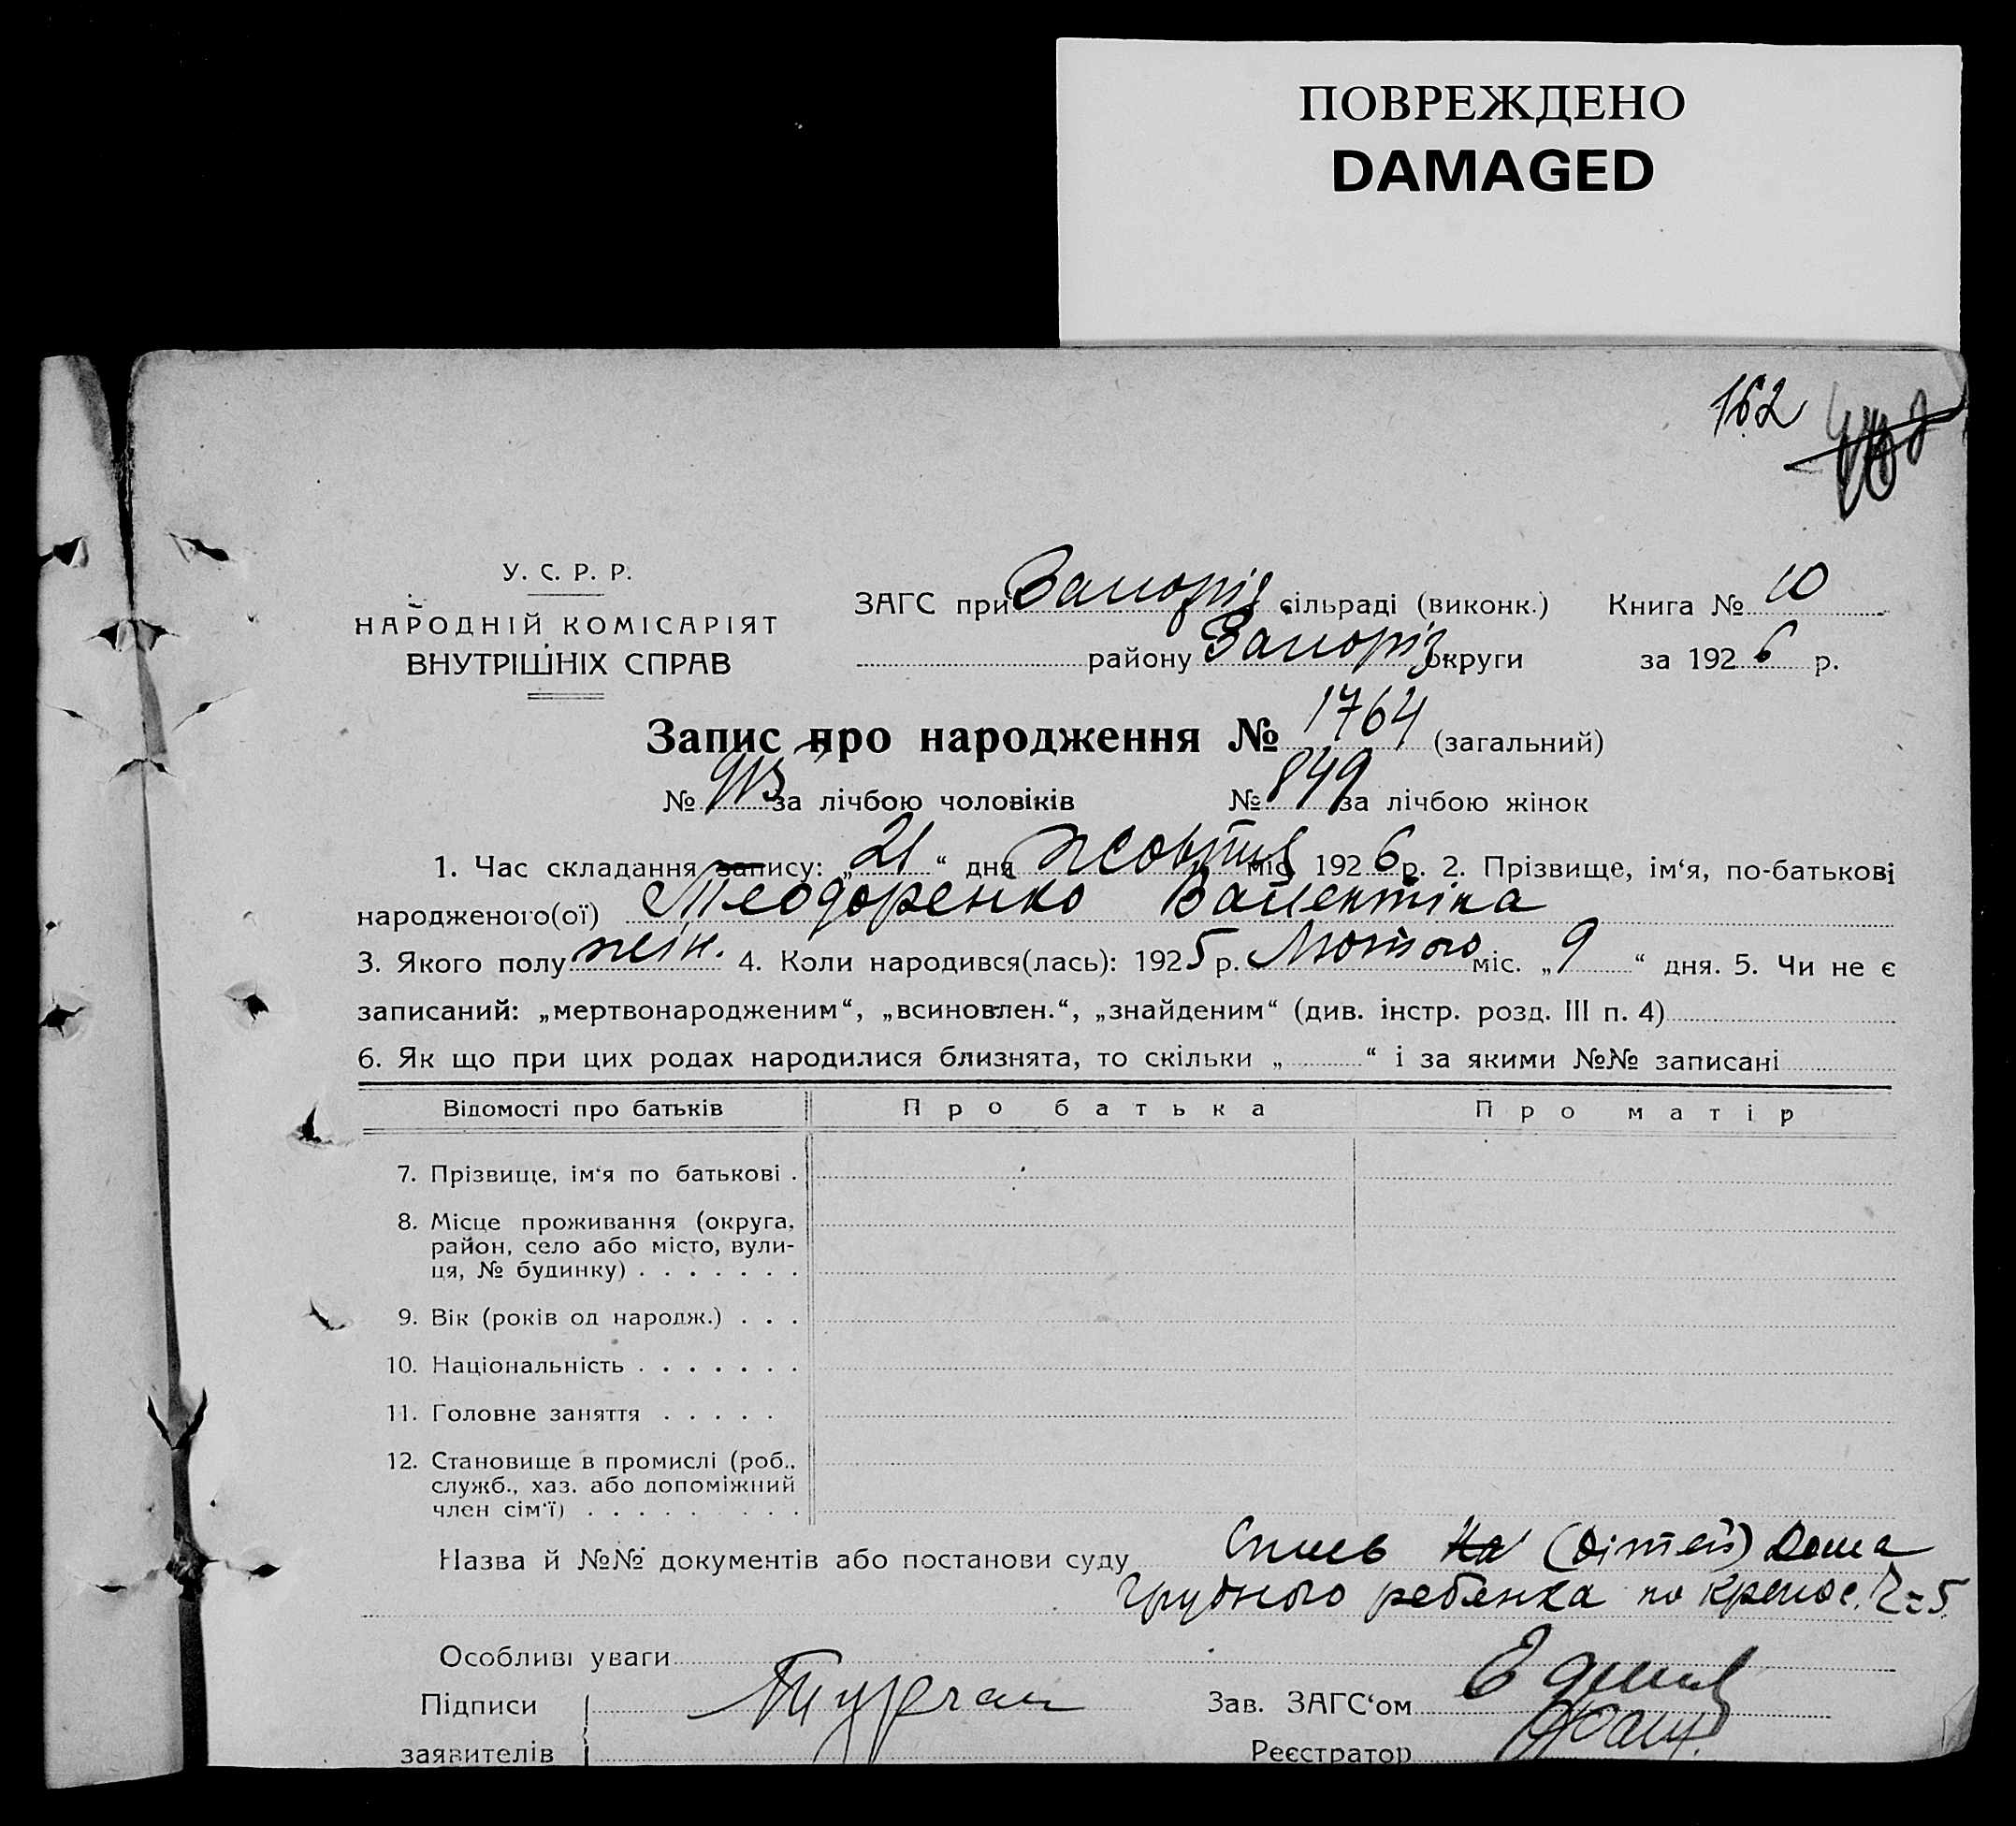 ПОВРЕЖДЕНО
DAMAGED
162
У. С. Р. Р.
НАРОДНІЙ КОМІСАРІЯТ
ВНУТРІШНІХ СПРАВ
ЗАГС при Запоріз. сільраді (виконк.) Книга № 10
району Запоріз. округи за 1926 р.
Запис про народження № 1764 (загальний)
№ 915 за лічбою чоловіків № 849 за лічбою жінок
1. Час складання запису: „21“ дня жовтня міс. 1926 р. 2. Прізвище, ім‘я, по-батькові
народженого(ої) Теодоренко Валентіна
3. Якого полу жін. 4. Коли народився(лась): 1925 р. Лютого міс. „9“ дня. 5. Чи не є
записаний: „мертвонародженим“, „всиновлен.“, „знайденим“ (див. інстр. розд. III п. 4)
6. Як що при цих родах народилися близнята, то скільки „ “ і за якими №№ записані
Відомості про батьків Про батька Про матір
7. Прізвище, ім‘я по батькові .
8. Місце проживання (округа,
район, село або місто, вули-
ця, № будинку) . . . . . . .
9. Вік (років од народж.) . . .
10. Національність . . . . . . .
11. Головне заняття . . . . .
12. Становище в промислі (роб.,
служб., хаз. або допоміжний
член сім‘ї) . . . . . . . . .
Назва й №№ документів або постанови суду (дітей) Дома
грудного ребенка по
Особливі уваги
Підписи Зав. ЗАГС‘ом
заявителів Реєстратор